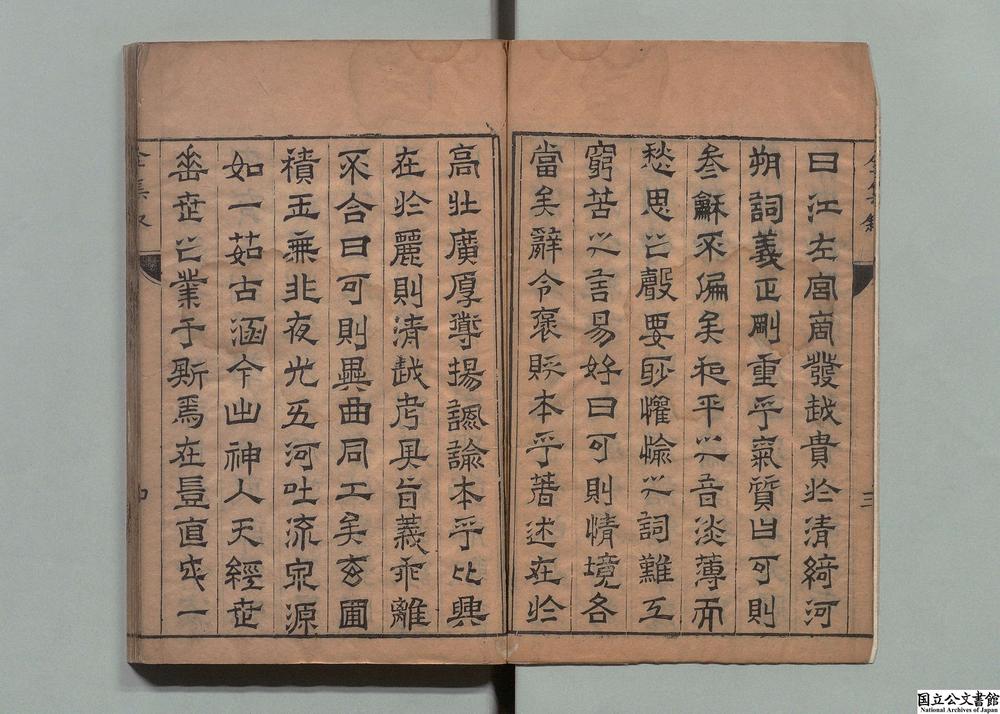 曰江左宮商發越貴於清綺河
朔詞義正剛重乎氣質曰可則
參龢不偏矣和平之音淡薄而
愁思之聲要眇懽愉之詞難工
窮苦之言易好曰可則情境各
當矣辭令褒貶本乎著述在於
高壯廣厚導揚諷諭本乎比興
在於麗則清越考其旨義乖離
不合曰可則異曲同工矣玄圃
積玉無非夜光五河吐流泉源
如一茹古涵今出神人天經世
垂世之業于斯焉在豈直成一
国立公文書館
National Archives of Japan